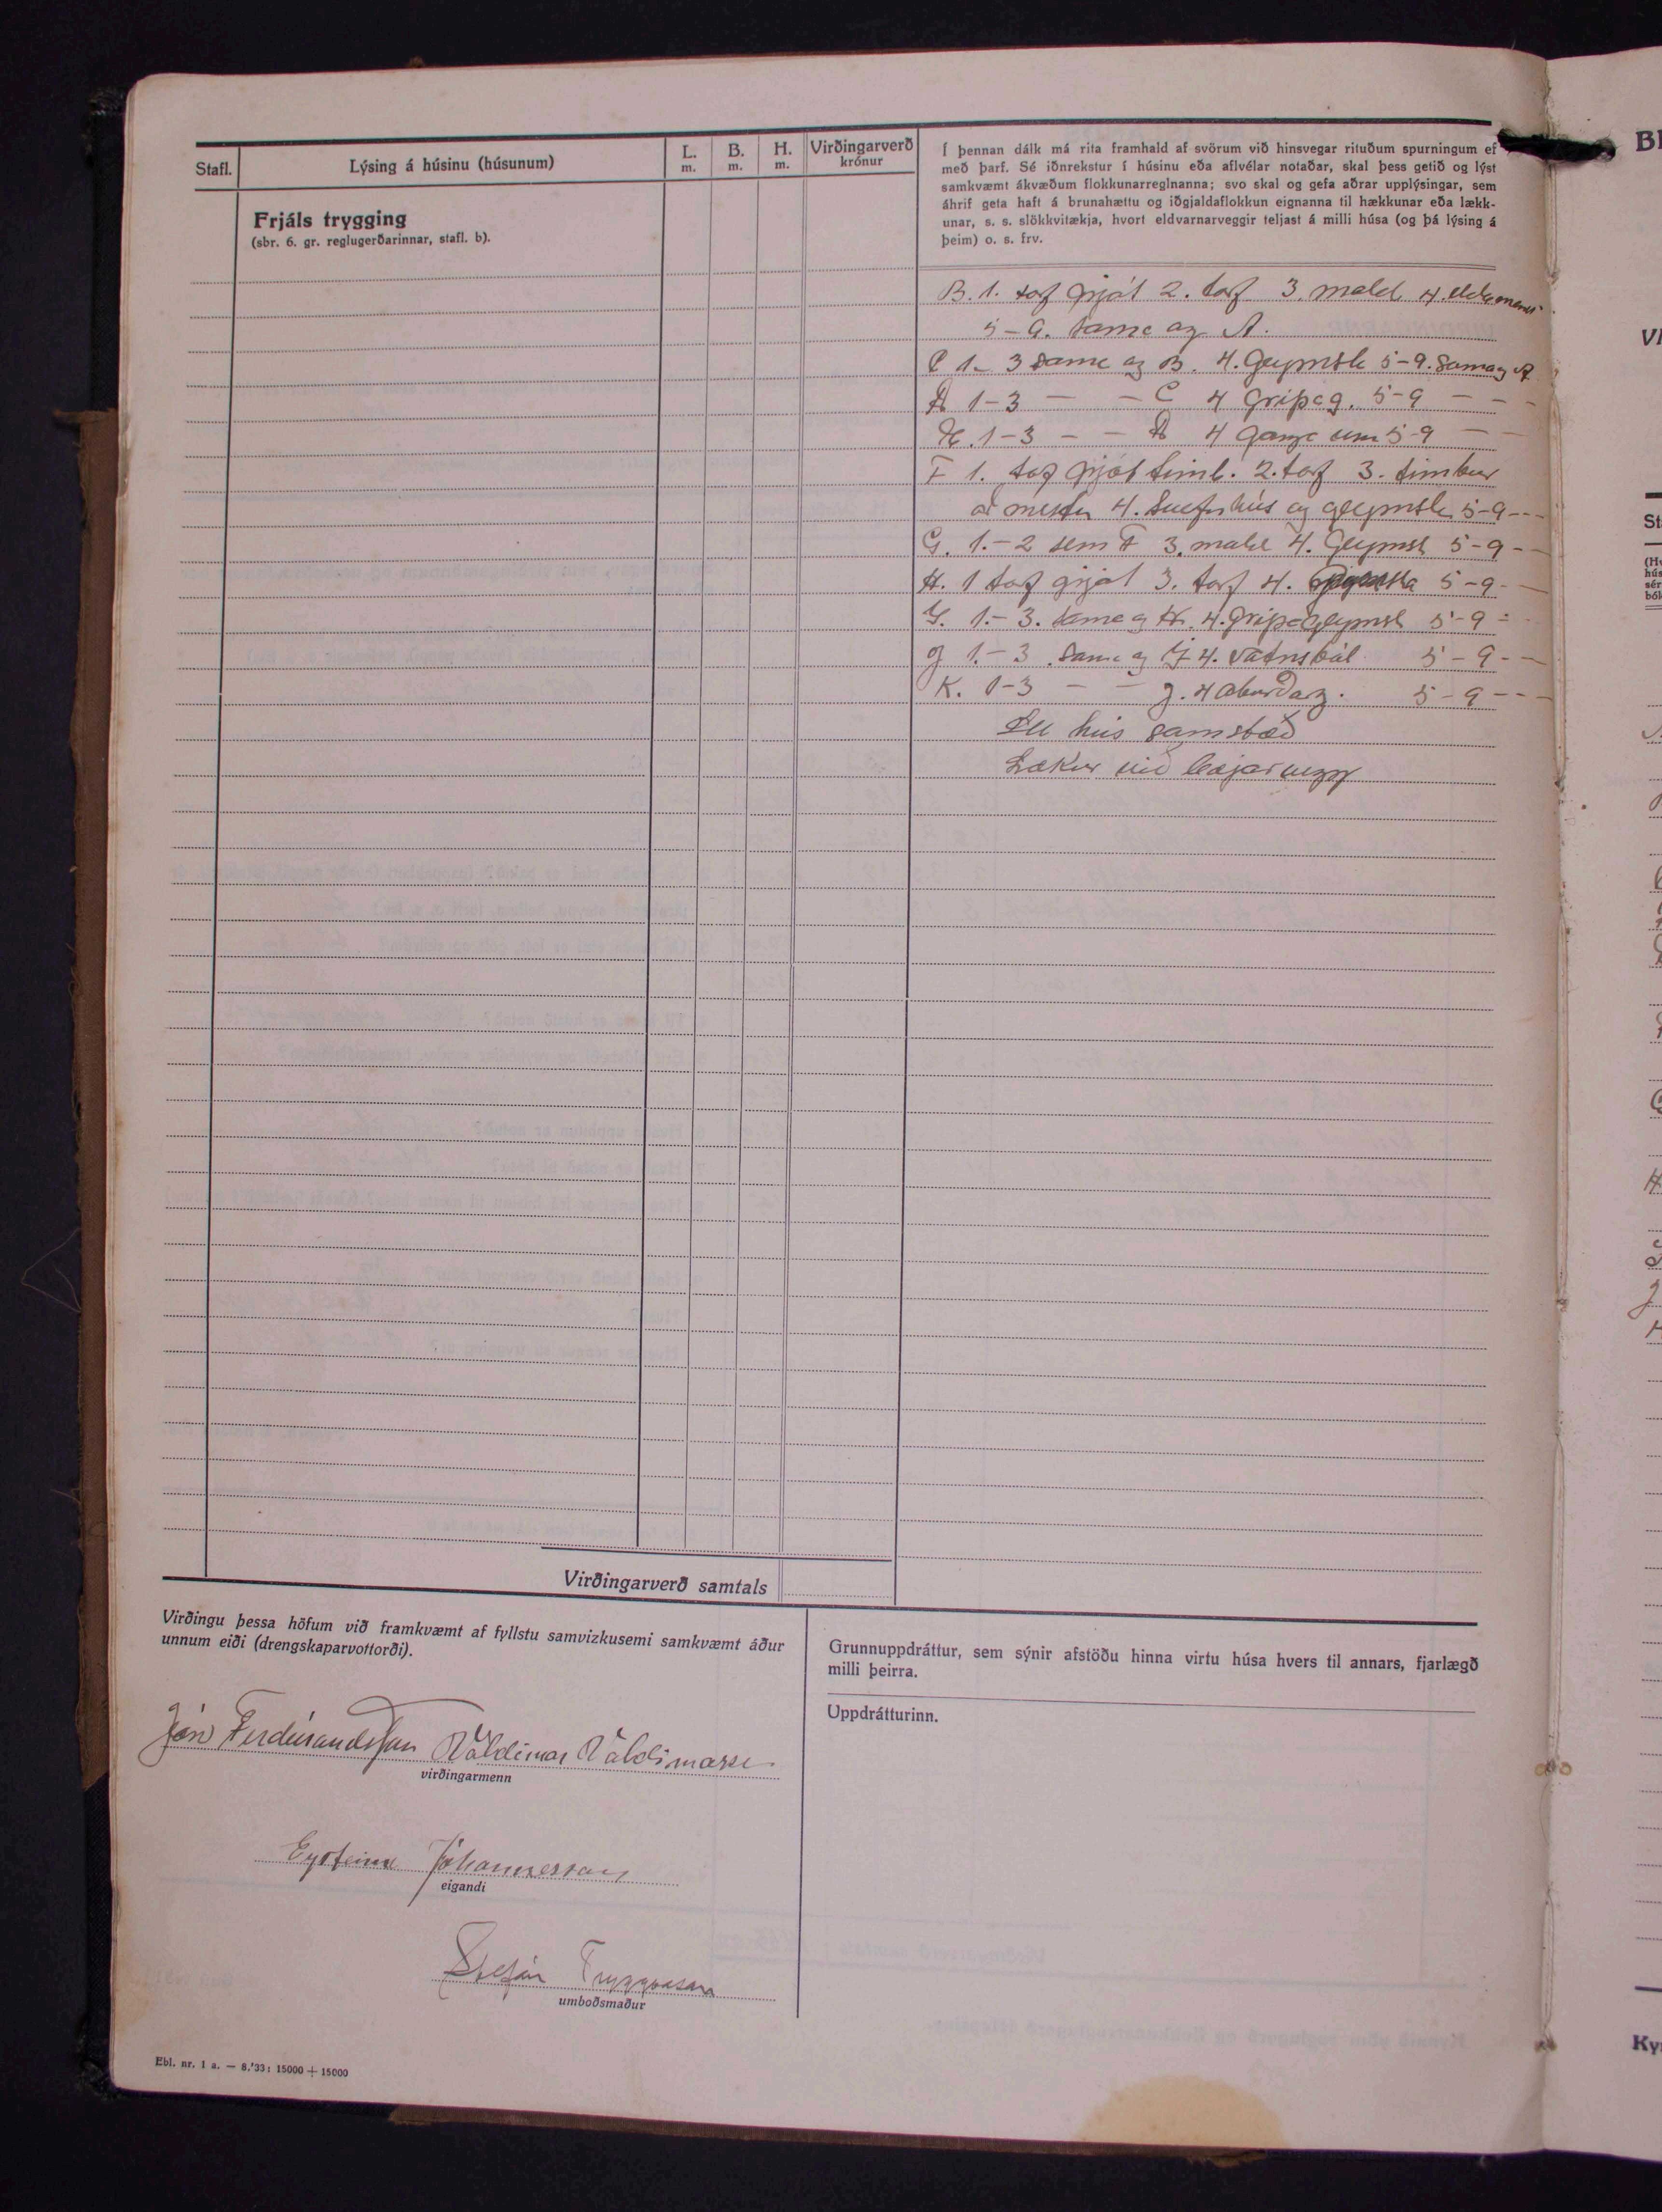 Stafl.
Lýsing á húsinu (húsunum)
L.
m.
B.
m.
H.
m.
Virðingarverð
krónur
Frjáls trygging
(sbr. 6. gr. reglugerðarinnar, stafl. b).
Í þennan dálk má rita framhald af svörum við hinsvegar rituðum spurningum ef
með þarf. Sé iðnrekstur í húsinu eða aflvélar notaðar, skal þess getið og lýst
samkvæmt ákvæðum flokkunarreglnanna; svo skal og gefa aðrar upplýsingar, sem
áhrif geta haft á brunahættu og iðgjaldaflokkun eignanna til hækkunar eða lækk-
unar, s. s. slökkvitækja, hvort eldvarnarveggir teljast á milli húsa (og þá lýsing á
þeim) o. s. frv.
B. 1. torf grjót 2. torf 3. mold 4.
5-9. sama og A.
C 1- 3 sama og B. 4. Geymsla 5-9. Sama og A
D 1-3 - - C 4 Gripag. 5-9 - - -
E. 1-3 - - D 4 gangr 5-9 - -
F 1. torf grjót timb. 2. torf 3. timbur
að mestu 4. Svefnhús og geymsla 5-9 - - -
G. 1.-2 sem F 3. mold 4. Geymsl 5-9 - -
H. 1 torf grjót 3. torf 4. 5-9 - -
Í. 1.-3. sama og H. 4. Gripageymsl 5-9 - -
J 1.-3. sama og Í 4. Vatnsból 5-9 - -
K. 1-3 - - J. 4 áburðarg. 5-9 - - -
Öll hús samstæð
Lækur við bæjarvegg
Virðingarverð samtals
Virðingu þessa höfum við framkvæmt af fyllstu samvizkusemi samkvæmt áður
unnum eiði (drengskaparvottorði).
Jón Ferdínandsson Valdimar Valdimarss
virðingarmenn
Eysteinn Jóhannesson
eigandi
Stefán Tryggvason
umboðsmaður
Grunnuppdráttur, sem sýnir afstöðu hinna virtu húsa hvers til annars, fjarlægð
milli þeirra.
Uppdrátturinn.
Ebl. nr. 1 a. — 8.'33: 15000 + 15000